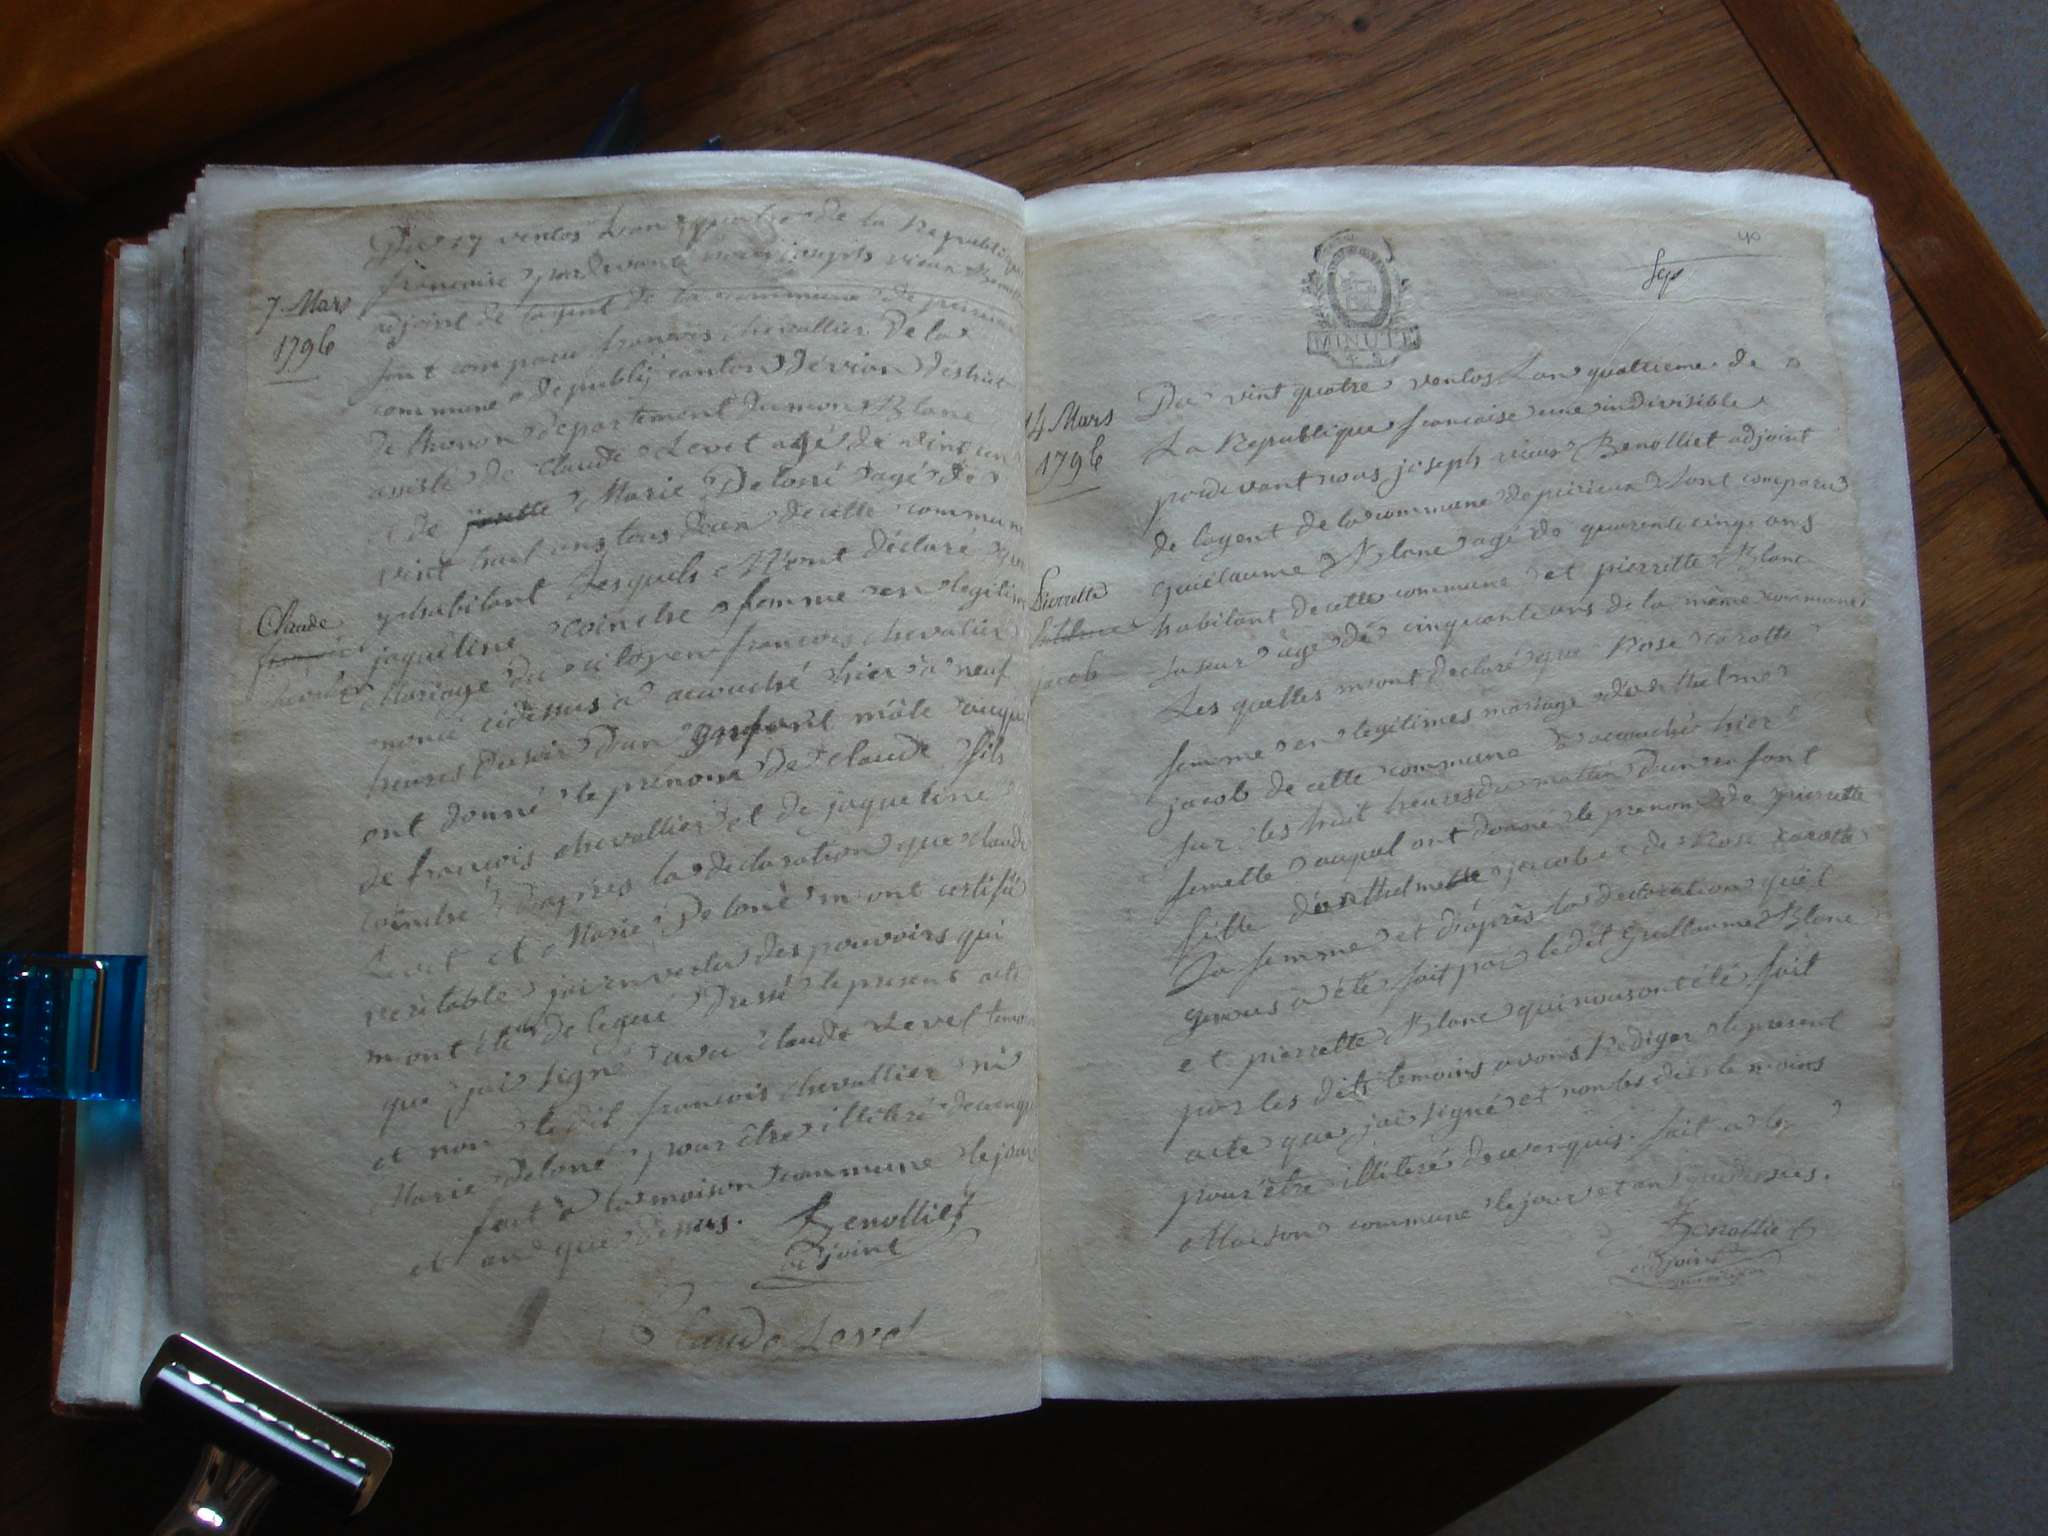 7. Mars
1796
Claude
Du 17 ventos Lan quatre de la Republique
francoise par devant nous
adjoint de lagent de la commune de
sont comparu francois chevallier De la
commune de publij canton Dévian Déstrict
de thonon département du mont Blanc
assisté de Claude Levet agé de vint un
et de Marie Deloné agé de
vint huit ans tous deux de cette commune
y habitant Lesquels M'ont déclaré que
jaquéline coindre femme en legitime
Mariage du citoyen francois chevalier
noncé cidessus a accouché hier à neuf
heures du soir d'un enfant mâle auquel
ont donné le prénom De claude fils
de francois chevallier et de jaqueline
coindre D'après la déclaration que claude
Levet et Marie Deloné m'ont certifié
veritable jai en vertu des pouvoirs qui
m'ont été délégué Dressé le present acte
que jai signé avec claude Levet temoin
et non le dit francois chevallier ni
Marie deloné pour être illitéré de ce enquis
fait à la maison commune le jour
et an que dessus. Benolliet
adjoint
Claude Levet
40
MINUTE
14 Mars
1796
Pierrette
jacob
Du vint quatre ventos Lan quattrieme de
La Republique francoise une indivisible
pardevant nous joseph Benolliet adjoint
de lagent de la commune de sont comparu
Guielaume Blanc agé de quarente cinq ans
habitant de cette commune et pierrette Blanc
sa seur agé de cinquante ans de la même commune
Les quelles m'ont declaré que Rose carotte
femme en legitimes mariage
jacob de cette commune a accouché hier
sur les huit heures du mattin d'un enfant
femelle auquel ont donné le prenom de pierrette
fille jacob et de Rose carotte
Sa femme et d'après la declaration quil
nous a été fait par le dit Guillaume Blanc
et pierrette Blanc qui nous ont été fait
par les dits temoins avons Rediger le present
acte que jai signé et non les dits temoins
pour être illiteré de ce enquis. fait a la
Maison commune le jour et an que dessus.
Benolliet
adjoint